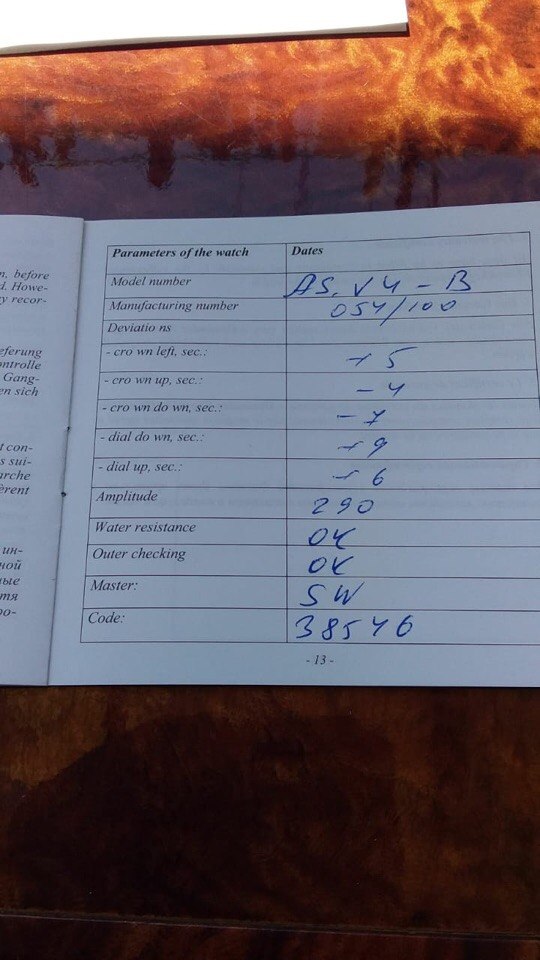 n. before
d. Howe-
y recor-
eferung
ontrolle
Gang-
en sich
t con-
s sui-
arche
èrent
ин-
ной
ные
тя
ро-
Parameters of the watch Dates
Model number AS.V4-B
Manufacturing number 054/100
Deviatio ns
- cro wn left, sec.: +5
- cro wn up, sec.: -4
- cro wn do wn, sec.: -7
- dial do wn, sec.: +9
- dial up, sec.: +6
Amplitude 290
Water resistance OK
Outer checking OK
Master: SW
Code: 38546
- 13 -